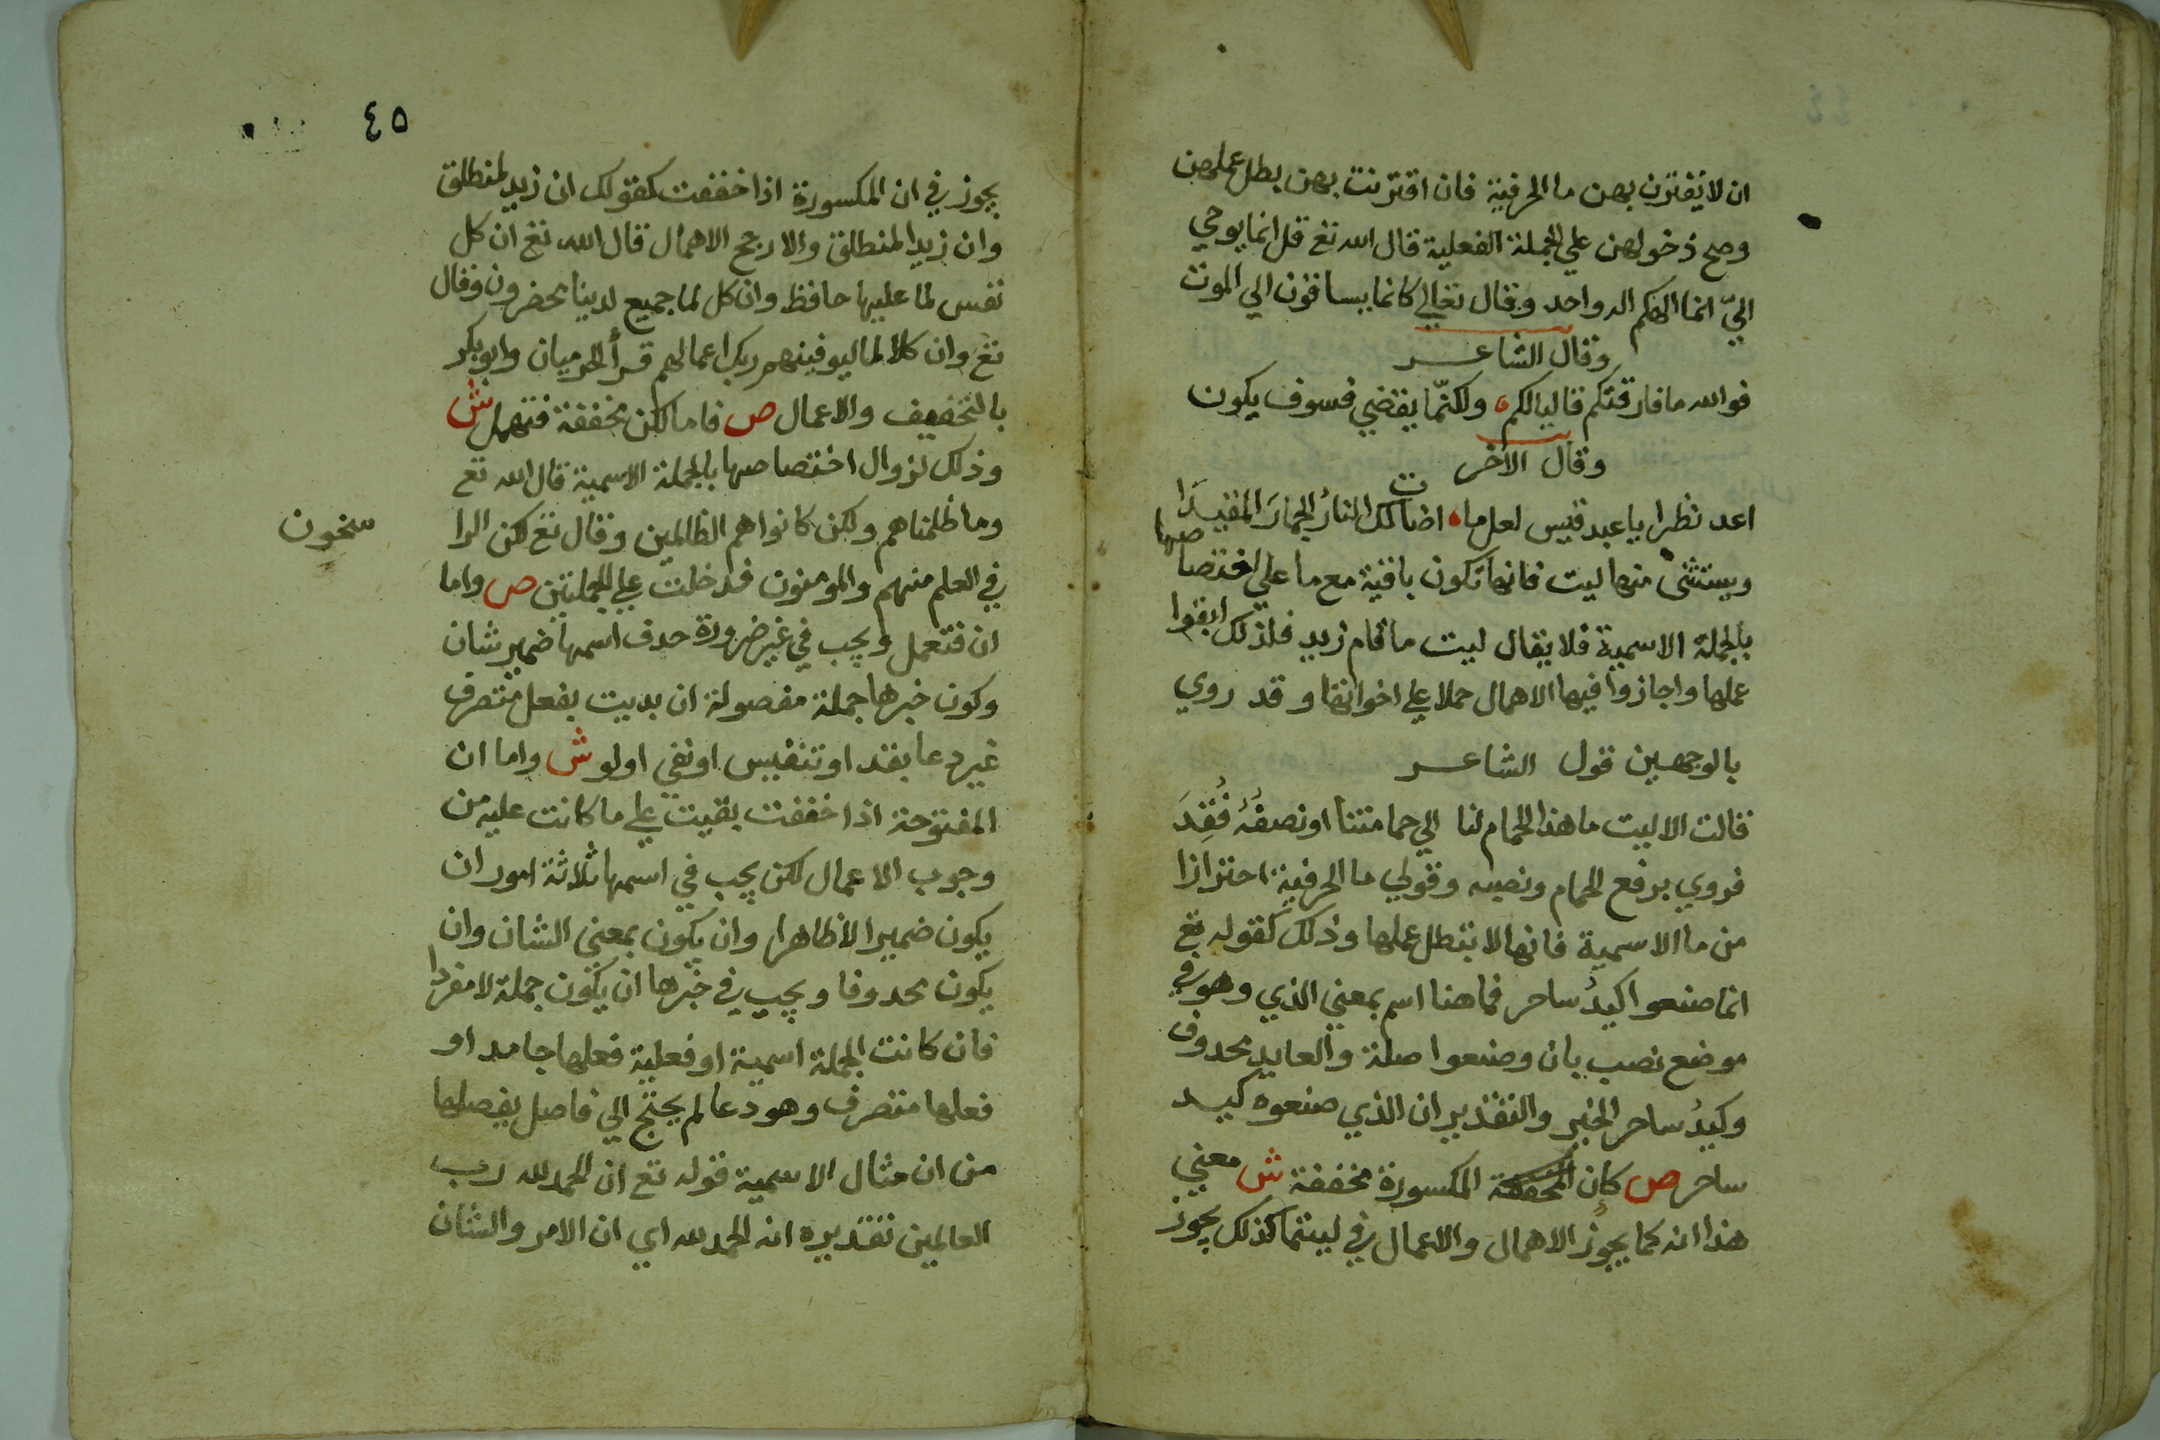 ان لا يقترن بهن ما الحرفية فان اقترنت بهن بطل عملهن
وصح دخولهن علي الجملة الفعلية قال الله تع قل انما يوحي
اليّ انما الهكم اله واحد وقال تعالي كانما يساقون الي الموت
وقال الشاعر
فوالله ما فارقتكم قاليا لكم ولكنّما يقضي فسوف يكون
وقال الأخر
اعد نظرا يا عبد قيس لعل ما اضاءت لك النارُ الحمارَ المقيدَا
ويستثنى منها ليت فانها تكون باقية مع ما علي اختصاصها
بالجملة الاسمية فلا يقال ليت ما قام زيد فلذلك ابقوا
عملها واجازوا فيها الاهمال حملا علي اخواتها وقد روي
بالوجهين قول الشاعر
قالت الا ليت ما هذا الحمام لنا الي حمامتنا او نصفُهُ فُقِدَ
فروي برفع الحمام ونصبه وقولي ما الحرفية احترازا
من ما الاسمية فانها لا تبطل عملها وذلك كقوله تع
انما صنعوا كيدُ ساحر فما هنا اسم بمعني الذي وهو في
موضع نصب بان وصنعوا صلة والعايد محذوف
وكيدُ ساحر الخبر والتقدير ان الذي صنعوه كيد
ساحر ص كان المكسورة مخففة ش معني
هذا انه كما يجوز الاهمال والاعمال في ليتما كذلك يجوز
٤٥
يجوز في ان المكسورة اذا خففت كقولك ان زيد لمنطلق
وان زيدا لمنطلق والارجح الاهمال قال الله تع ان كل
نفس لما عليها حافظ وان كل لما جميع لدينا محضرون وقال
تع وان كلا لما ليوفينهم ربك اعمالهم قرأ الحرميان وابو بكر
بالتخفيف والاعمال ص فاما لكن مخففة فتهمل ش
وذلك لزوال اختصاصها بالجملة الاسمية قال الله تع
وما ظلمناهم ولكن كانوا هم الظالمين وقال تع لكن الرا
سخون
في العلم منهم والمومنون فدخلت علي الجملتين ص واما
ان فتعمل ويجب في غير ضرورة حدف اسمها ضمير شان
وكون خبرها جملة مفصولة ان بديت بفعل متصرف
غير دعا بقد او تنفيس او نفي او لو ش واما ان
المفتوحة اذا خففت بقيت علي ما كانت عليه من
وجوب الاعمال لكن يجب في اسمها ثلاثة امور ان
يكون ضميرا لا ظاهرا وان يكون بمعني الشان وان
يكون محدوفا ويجب في خبرها ان يكون جملة لا مفردا
فان كانت الجملة اسمية او فعلية فعلها جامد او
فعلها متصرف وهو دعا لم يحتج الي فاصل يفصلها
من ان مثال الاسمية قوله تع ان الحمد لله رب
العالمين تقديره انه الحمد لله اي ان الامر والشان